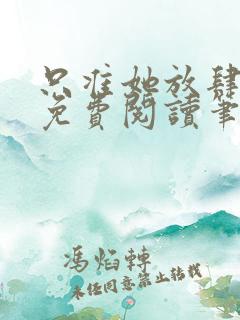 只准她放肆
免費閱讀筆
馮焰轉
未经同意禁止转载